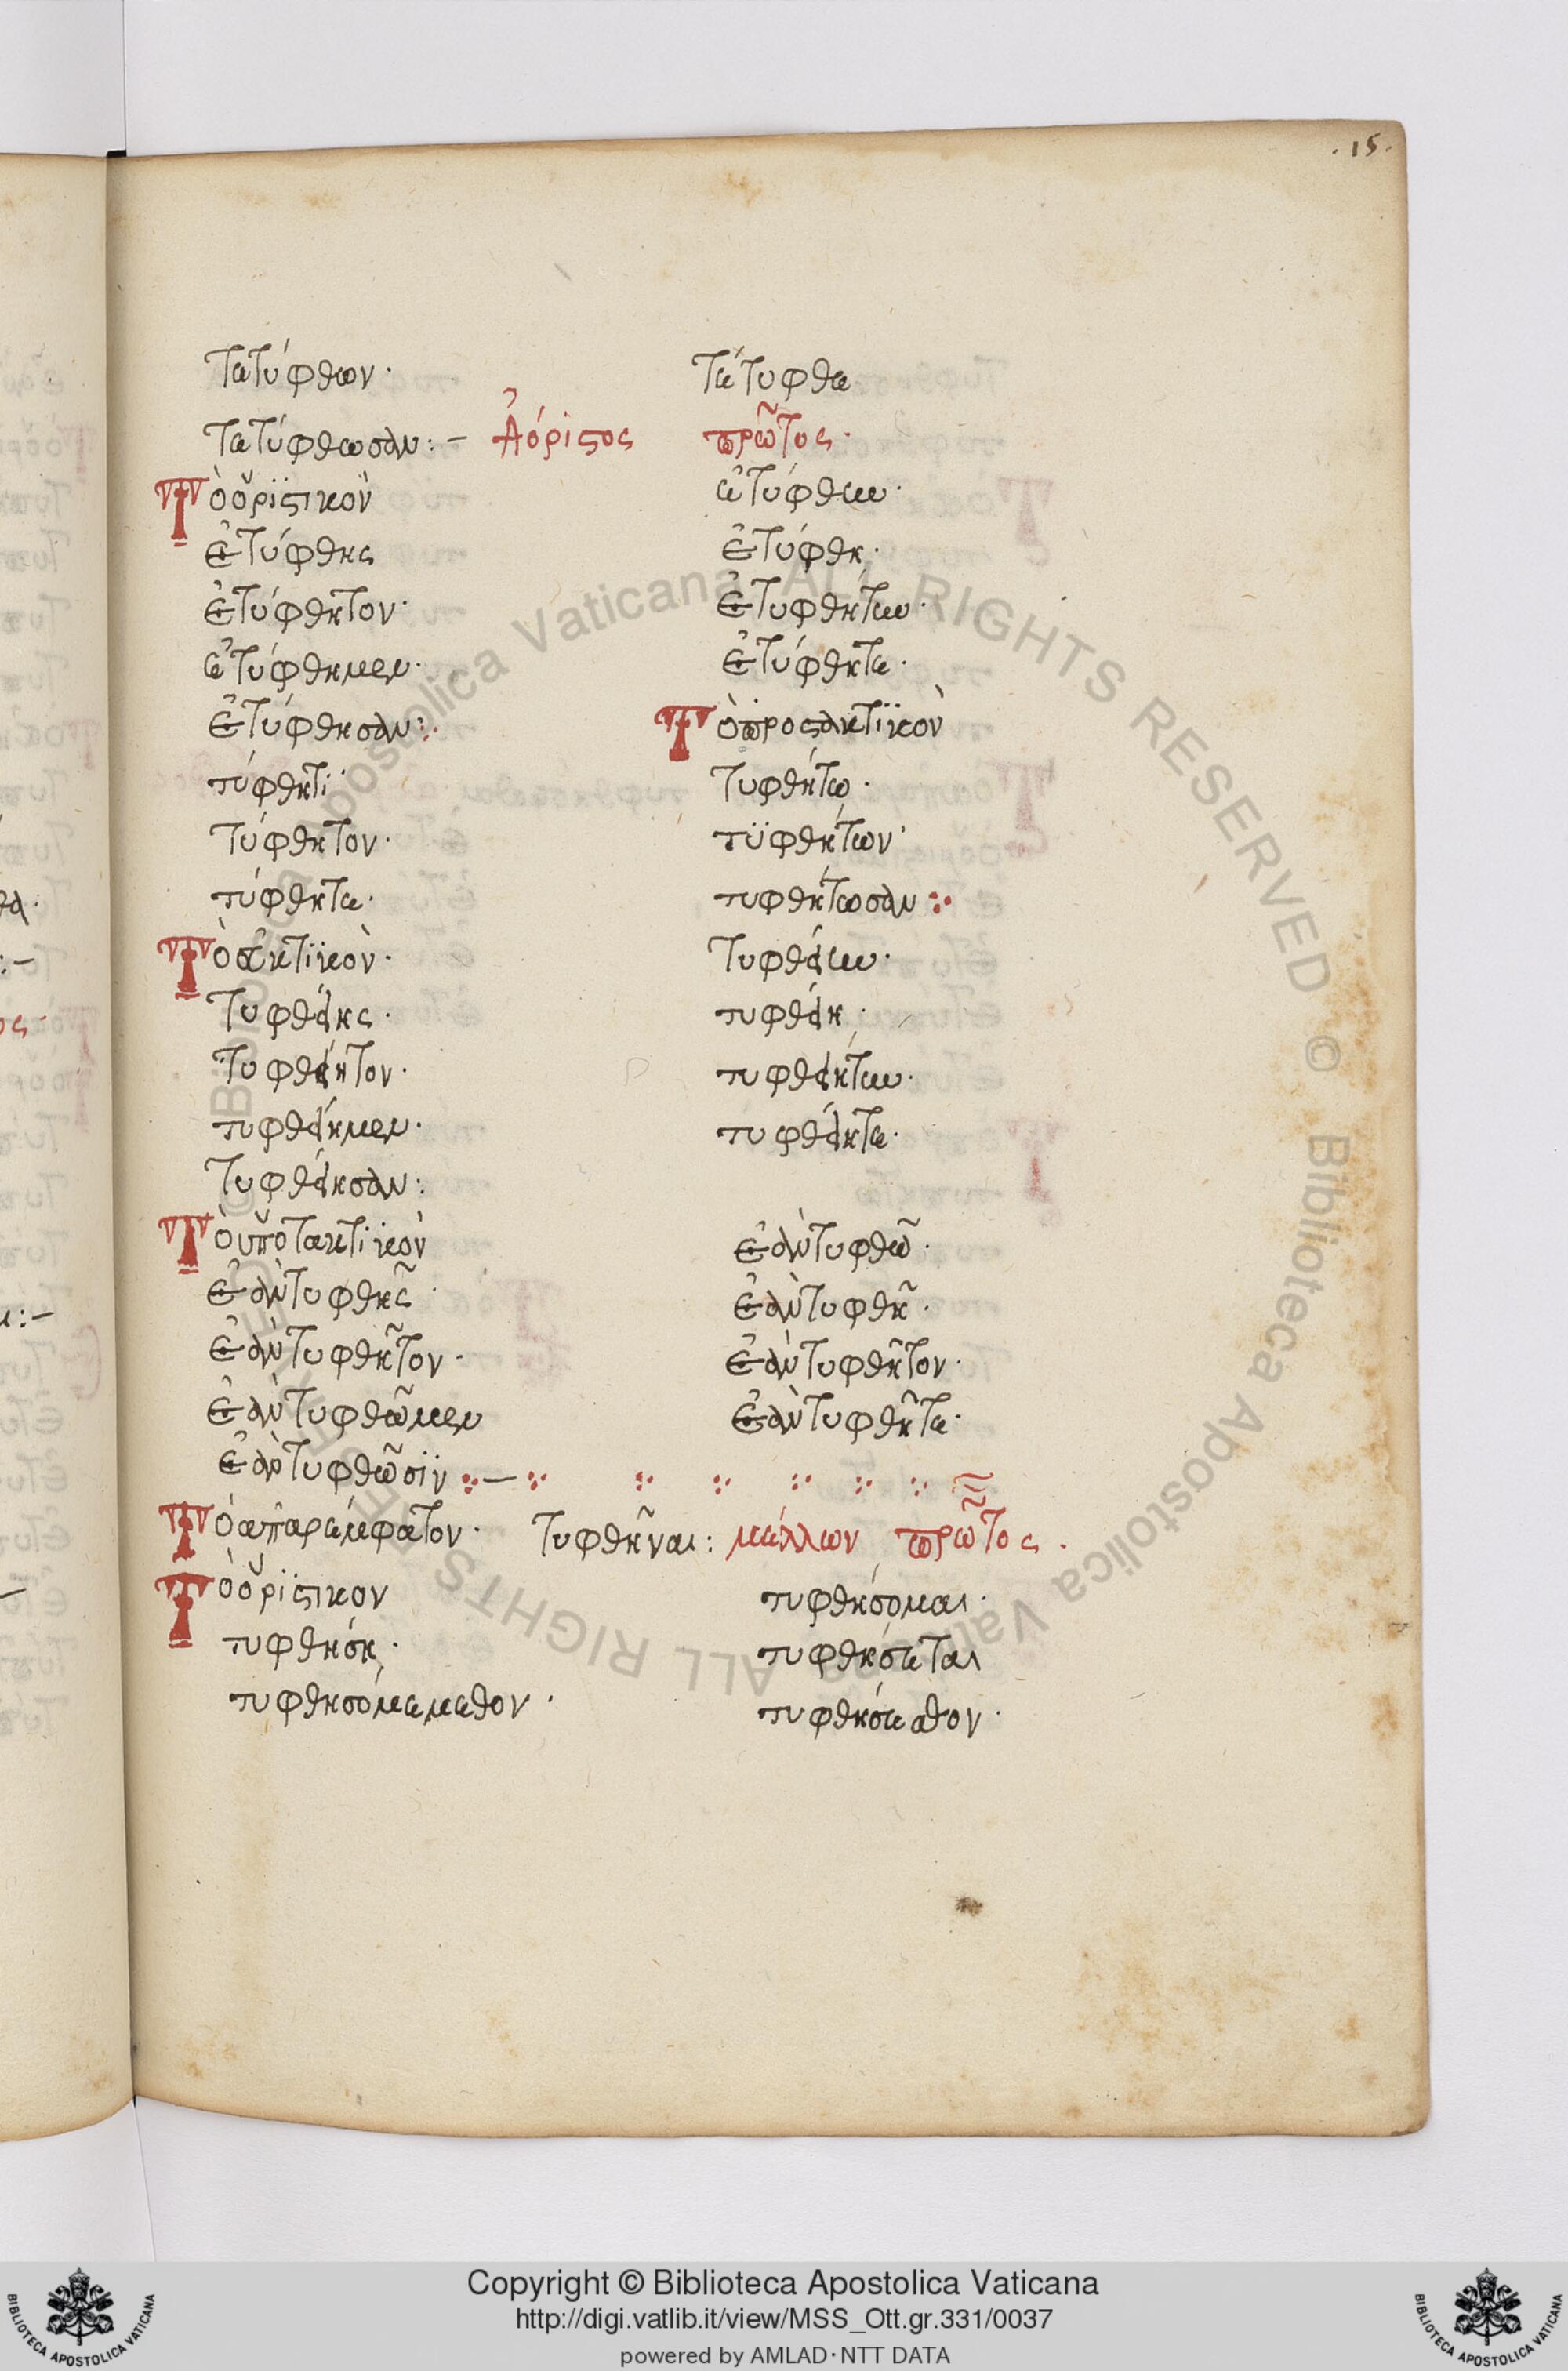 .15.
τετύφθων· τέτυφθε
τετύφθωσαν:– Ἀόριστος πρῶτος·
Τὸ ὁριστικὸν ἐτύφθην·
ἐτύφθης ἐτύφθη·
ἐτύφθητον· ἐτυφθήτην·
ἐτύφθημεν· ἐτύφθητε·
ἐτύφθησαν: Τὸ προστακτικὸν
τύφθητι· τυφθήτω·
τύφθητον· τυφθήτων·
τύφθητε· τυφθήτωσαν:
Τὸ εὐκτικὸν· τυφθείην·
τυφθείης· τυφθείη·
τυφθείητον· τυφθειήτην·
τυφθείημεν· τυφθείητε·
τυφθείησαν:
Τὸ ὑποτακτικὸν ἐὰν τυφθῶ·
ἐὰν τυφθῆς· ἐὰν τυφθῆ·
ἐὰν τυφθῆτον· ἐὰν τυφθῆτον·
ἐὰν τυφθῶμεν ἐὰν τυφθῆτε·
ἐὰν τυφθῶσιν
Τὸ ἀπαρέμφατον· τυφθῆναι: μέλλων πρῶτος.
Τὸ ὁριστικον τυφθήσομαι·
τυφθήση· τυφθήσεται
τυφθησόμεμεθον· τυφθήσεσθον·
Copyright © Biblioteca Apostolica Vaticana
http://digi.vatlib.it/view/MSS_Ott.gr.331/0037
powered by AMLAD·NTT DATA